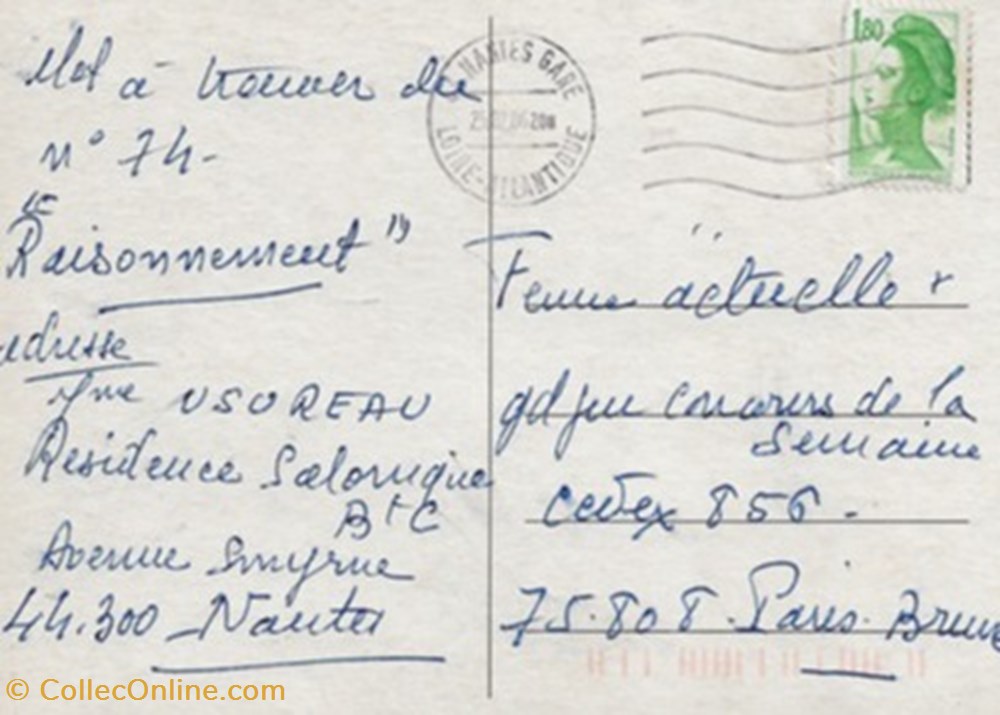 Mot à trouver du
n° 74-
"Raisonnement"
adresse
Mme USUREAU
Résidence Salonique
Bt C
Avenue Smyrne
44.300 Nantes
NANTES GARE
LOIRE-ATLANTIQUE
1,80
Femme actuelle
gd jeu concours de la
semaine
cedex 856-
75.808 Paris. Brune
© CollecOnline.com